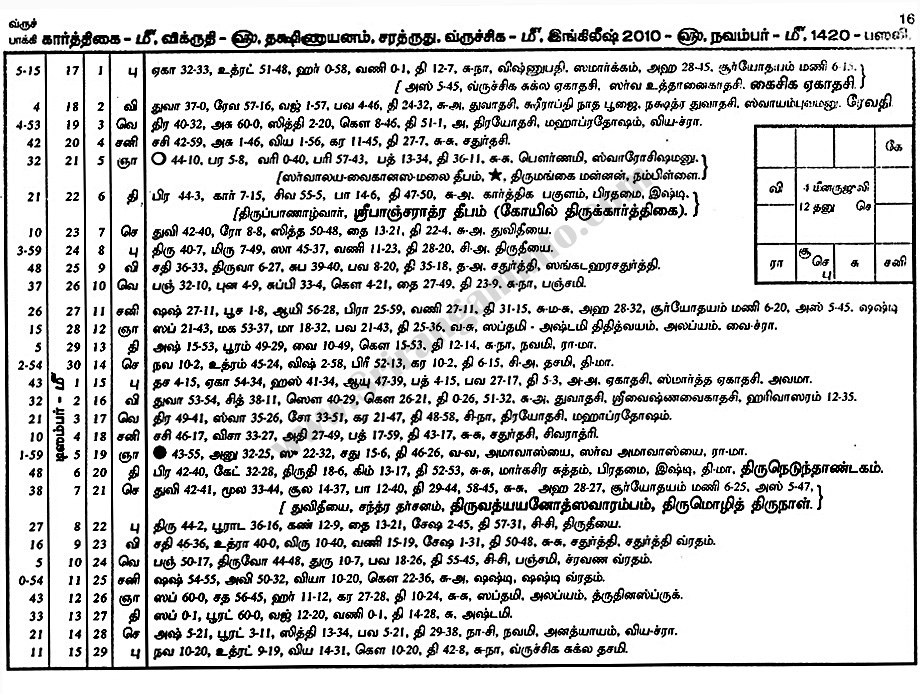 16
வ்ருச்
பாக்கி கார்த்திகை – மீ, விக்ருதி – ௵, தக்ஷிணாயனம், சரத்ருது. வ்ருச்சிக – மீ, இங்கிலீஷ் 2010 – ௵, நவம்பர் – மீ, 1420 – பஸலி.
5-15 17 1 பு ஏகா 32-33, உத்ரட் 51-48, ஹர் 0-58, வணி 0-1, தி 12-7, சு-நா, விஷ்ணுபதி, ஸ்மார்க்கம், அஹ 28-45, சூர்யோதயம் மணி 6-15,
[ அஸ் 5-45, வ்ருச்சிக சுக்ல ஏகாதசி. ஸர்வ உத்தானைகாதசி. கைசிக ஏகாதசி.
4 18 2 வி துவா 37-0, ரேவ 57-16, வஜ் 1-57, பவ 4-46, தி 24-32, சு-அ, துவாதசி, க்ஷீராப்தி நாத பூஜை, நக்ஷத்ர துவாதசி, ஸ்வாயம்புவமனு. ரேவதி.
4-53 19 3 வெ திர 40-32, அசு 60-0, ஸித்தி 2-20, கௌ 8-46, தி 51-1, அ, திரயோதசி, மஹாப்ரதோஷம், விய-ச்ரா.
42 20 4 சனி சசி 42-59, அசு 1-46, விய 1-56, கர 11-45, தி 27-7, சு-சு, சதுர்தசி.
32 21 5 ஞா ○ 44-10, பர 5-8, வரி 0-40, பரி 57-43, பத் 13-34, தி 36-11, சு-சு, பௌர்ணமி, ஸ்வாரோசிஷமனு.
[ஸர்வாலய-வைகானஸ-மலை தீபம், ★, திருமங்கை மன்னன், நம்பிள்ளை.
21 22 6 தி பிர 44-3, கார் 7-15, சிவ 55-5, பா 14-6, தி 47-50, சு-அ, கார்த்திக பகுளம், பிரதமை, இஷ்டி.
[திருப்பாணாழ்வார், ஸ்ரீபாஞ்சராத்ர தீபம் (கோயில் திருக்கார்த்திகை).
10 23 7 செ துவி 42-40, ரோ 8-8, ஸித்த 50-48, தை 13-21, தி 22-4, சு-அ, துவிதீயை.
3-59 24 8 பு திரு 40-7, மிரு 7-49, ஸா 45-37, வணி 11-23, தி 28-20, சி-அ, திருதீயை.
48 25 9 வி சதி 36-33, திருவா 6-27, சுப 39-40, பவ 8-20, தி 35-18, த-அ, சதுர்த்தி, ஸங்கடஹரசதுர்த்தி.
37 26 10 வெ பஞ் 32-10, புன 4-9, சுப்பி 33-4, கௌ 4-21, தை 27-49, தி 23-9, சு-நா, பஞ்சமி.
26 27 11 சனி ஷஷ் 27-11, பூச 1-8, ஆயி 56-28, பிரா 25-59, வணி 27-11, தி 31-15, சு-ம-சு, அஹ 28-32, சூர்யோதயம் மணி 6-20, அஸ் 5-45, ஷஷ்டி
15 28 12 ஞா ஸப் 21-43, மக 53-37, மா 18-32, பவ 21-43, தி 25-36, வ-சு, ஸப்தமி - அஷ்டமி திதித்வயம், அலப்யம், வை-ச்ரா.
5 29 13 தி அஷ் 15-53, பூரம் 49-29, வை 10-49, கௌ 15-53, தி 12-14, சு-நா, நவமி, ரா-மா.
2-54 30 14 செ நவ 10-2, உத்ரம் 45-24, விஷ் 2-58, பிரீ 52-13, கர 10-2, தி 6-15, சி-அ, தசமி, தி-மா.
டிஸம்பர் – மீ
43 1 15 பு தச 4-15, ஏகா 54-34, ஹஸ் 41-34, ஆயு 47-39, பத் 4-15, பவ 27-17, தி 5-3, அ-அ, ஏகாதசி, ஸ்மார்த்த ஏகாதசி, அவமா.
32 2 16 வி துவா 53-54, சித் 38-11, ஸௌ 40-29, கௌ 26-21, தி 0-26, 51-32, சு-அ, துவாதசி, ஸ்ரீவைஷ்ணவைகாதசி, ஹரிவாஸரம் 12-35.
21 3 17 வெ திர 49-41, ஸ்வா 35-26, சோ 33-51, கர 21-47, தி 48-58, சி-நா, திரயோதசி, மஹாப்ரதோஷம்.
10 4 18 சனி சசி 46-17, விசா 33-27, அதி 27-49, பத் 17-59, தி 43-17, சு-சு, சதுர்தசி, சிவராத்ரி.
1-59 5 19 ஞா ● 43-55, அனு 32-25, ஸு 22-32, சது 15-6, தி 46-26, வ-வ, அமாவாஸ்யை, ஸர்வ அமாவாஸ்யை, ரா-மா.
48 6 20 தி பிர 42-40, கேட் 32-28, திருதி 18-6, கிம் 13-17, தி 52-53, சு-சு, மார்கசிர சுத்தம், பிரதமை, இஷ்டி, தி-மா, திருநெடுந்தாண்டகம்.
38 7 21 செ துவி 42-41, மூல 33-44, சூல 14-37, பா 12-40, தி 29-44, 58-45, சு-சு, அஹ 28-27, சூர்யோதயம் மணி 6-25, அஸ் 5-47,
[ துவிதீயை, சந்த்ர தர்சனம், திருவத்யயனோத்ஸவாரம்பம், திருமொழித் திருநாள்.
27 8 22 பு திரு 44-2, பூராட 36-16, கண் 12-9, தை 13-21, சேஷ 2-45, தி 57-31, சி-சி, திருதீயை.
16 9 23 வி சதி 46-36, உத்ரா 40-0, விரு 10-40, வணி 15-19, சேஷ 1-31, தி 50-48, சு-சு, சதுர்த்தி, சதுர்த்தி வ்ரதம்.
5 10 24 வெ பஞ் 50-17, திருவோ 44-48, துரு 10-7, பவ 18-26, தி 55-45, சி-சி, பஞ்சமி, ச்ரவண வ்ரதம்.
0-54 11 25 சனி ஷஷ் 54-55, அவி 50-32, வியா 10-20, கௌ 22-36, சு-அ, ஷஷ்டி, ஷஷ்டி வ்ரதம்.
43 12 26 ஞா ஸப் 60-0, சத 56-45, ஹர் 11-12, கர 27-28, தி 10-24, சு-சு, ஸப்தமி, அலப்யம், த்ருதினஸ்ப்ருக்.
33 13 27 தி ஸப் 0-1, பூரட் 60-0, வஜ் 12-20, வணி 0-1, தி 14-28, சு, அஷ்டமி.
21 14 28 செ அஷ் 5-21, பூரட் 3-11, ஸித்தி 13-34, பவ 5-21, தி 29-38, நா-சி, நவமி, அனத்யாயம், விய-ச்ரா.
11 15 29 பு நவ 10-20, உத்ரட் 9-19, விய 14-31, கௌ 10-20, தி 42-8, சு-நா, வ்ருச்சிக சுக்ல தசமி.
கே
வி
4 மீனருஜுவி
12 தனு செ
ரா
சூ செ பு
சு
சனி